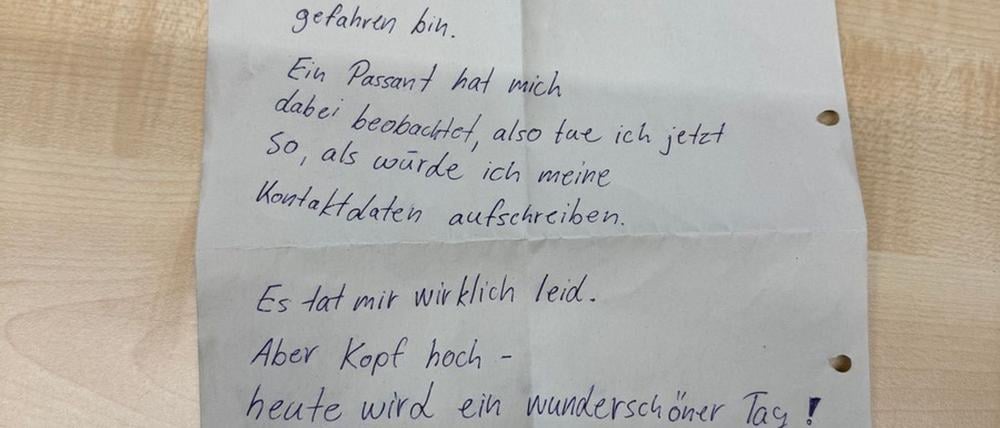 gefahren bin.
Ein Passant hat mich
dabei beobachtet, also tue ich jetzt
so, als würde ich meine
Kontaktdaten aufschreiben.
Es tat mir wirklich leid.
Aber Kopf hoch -
heute wird ein wunderschöner Tag!